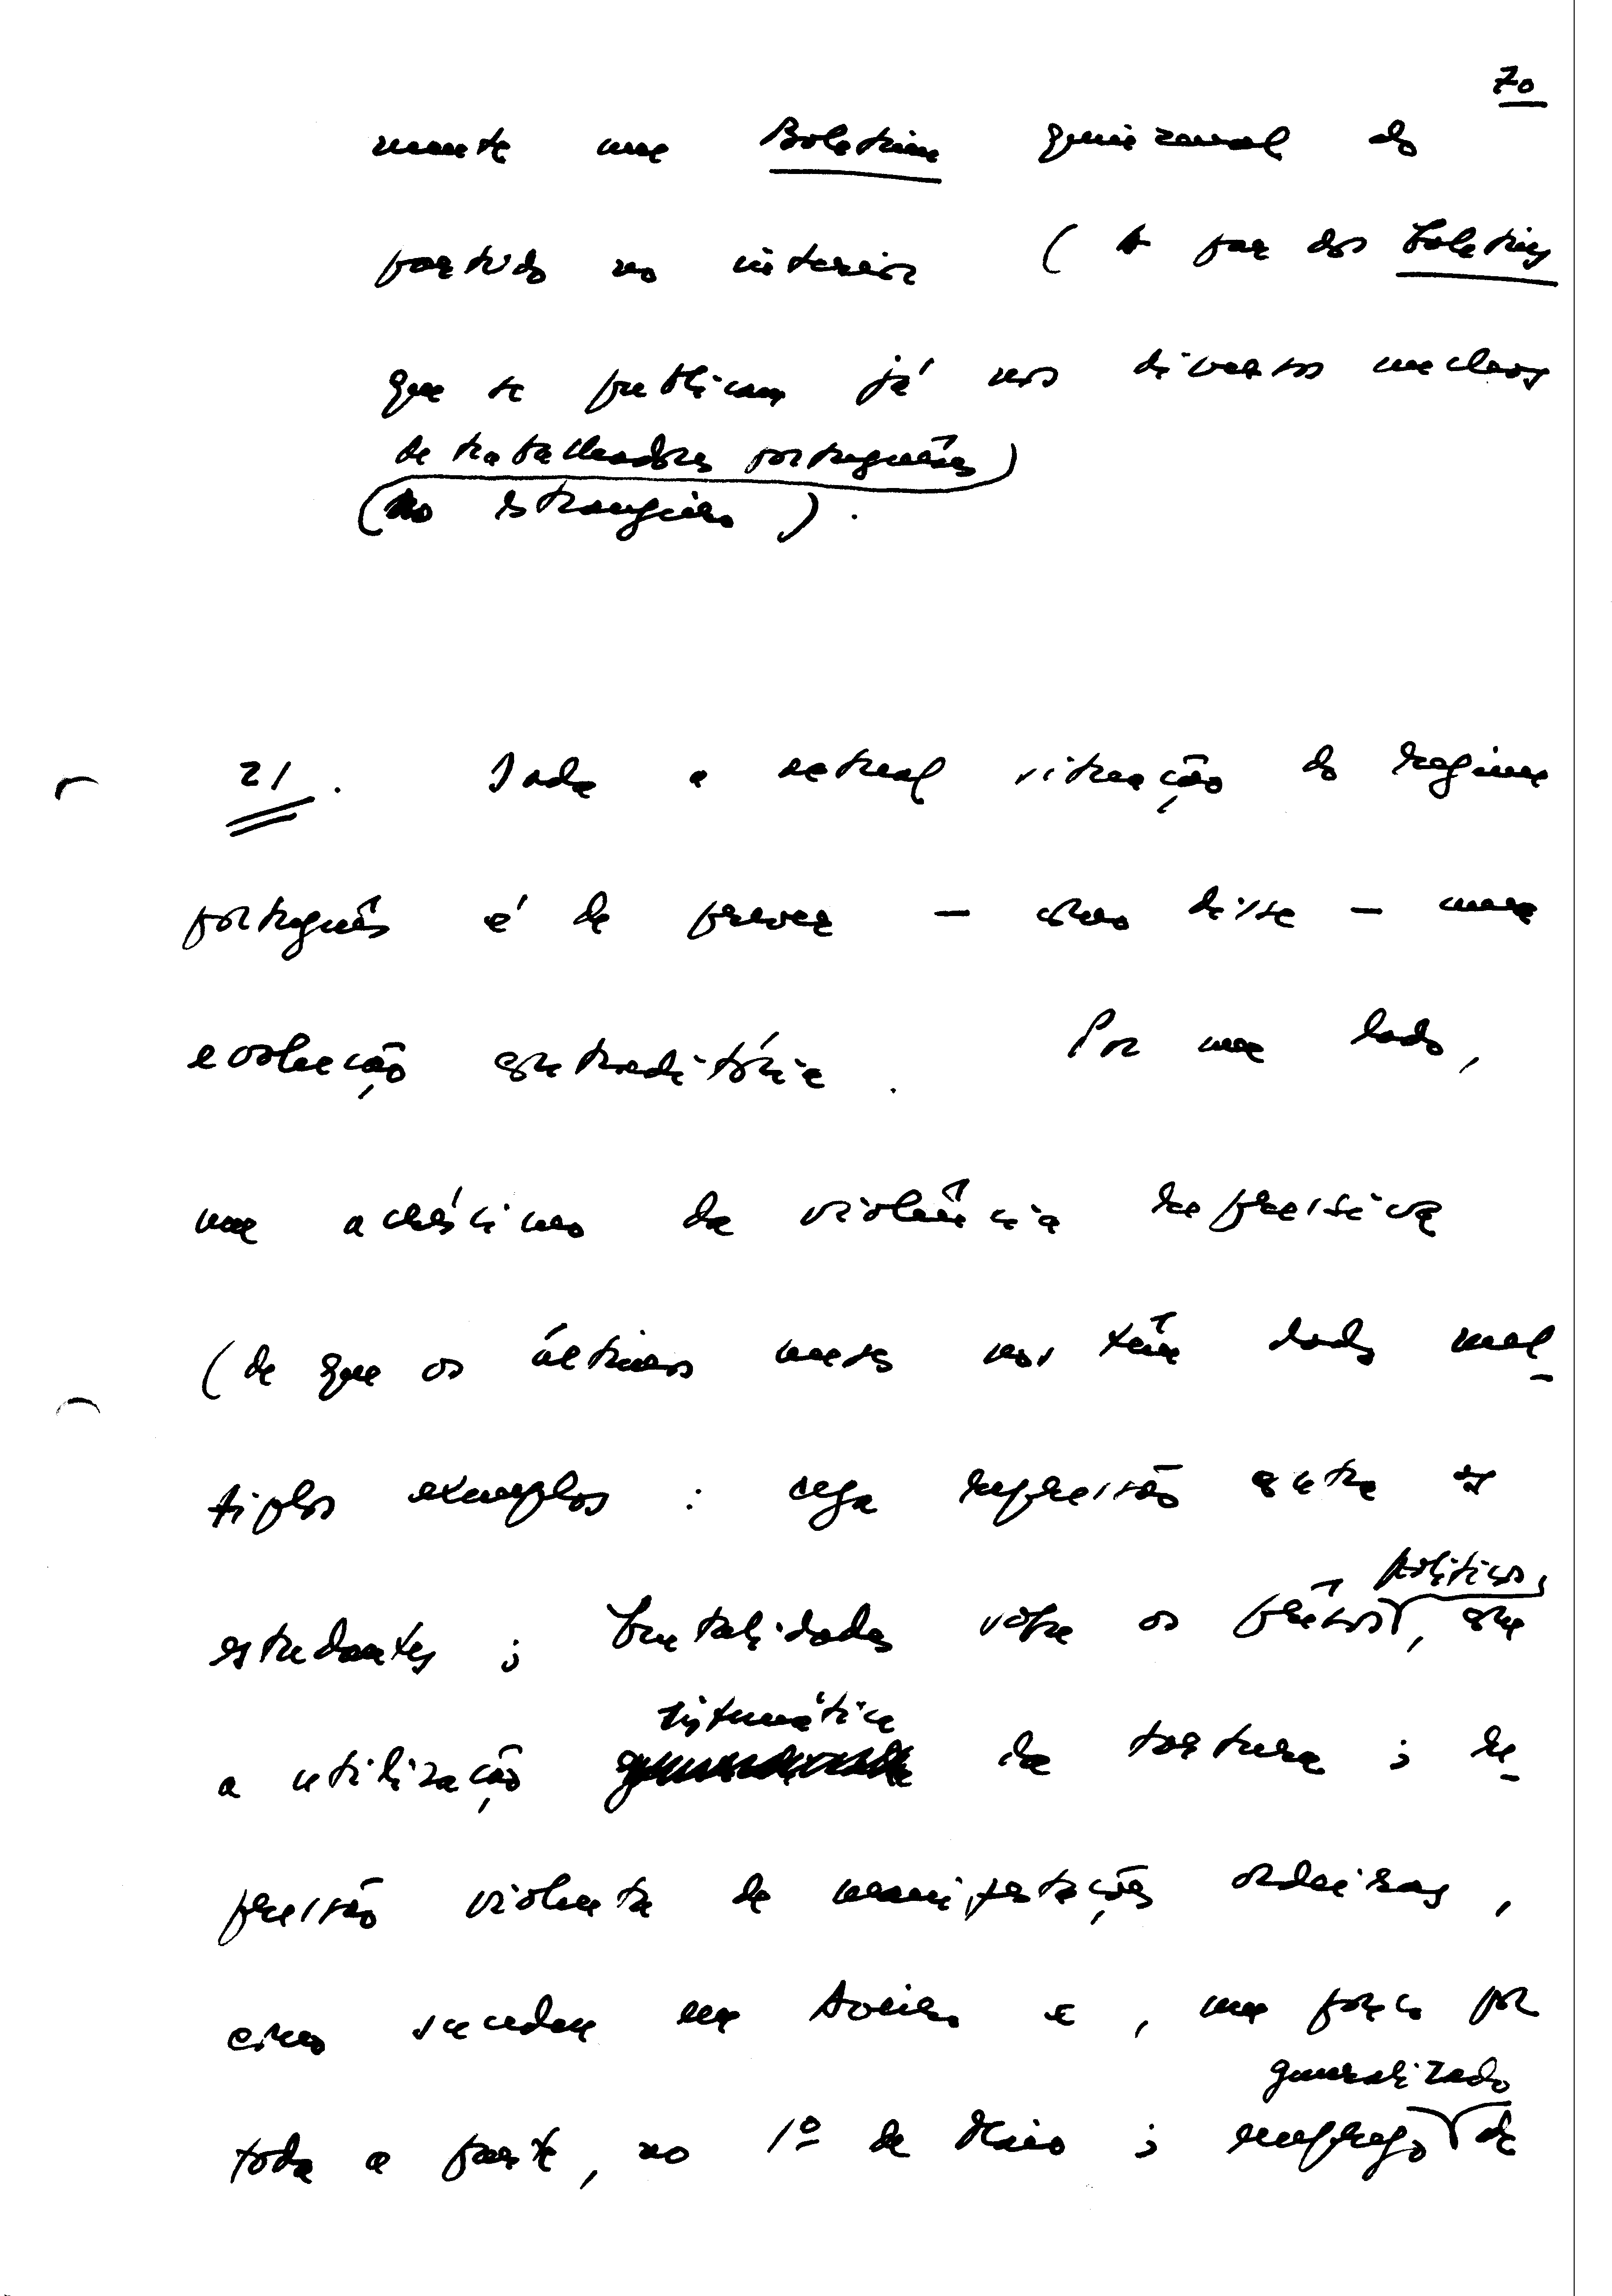 70
mente um Boletim quinzenal do
partido no interior (a par dos Boletins
que se publicam já nos diversos nucleos
de trabalhadores portugueses
no estrangeiro).
21. Dada a actual situação do regime
português é de prever — como disse — uma
evolução contraditória. Por um lado,
um acréscimo da violência repressiva
(de que os últimos meses nos têm dado mul-
tiplos exemplos: cega repressão contra os
estudantes; brutalidades sobre os prêsos políticos, com
a utilização sistemática da tortura; re-
pressão violenta de manifestações ordeiras,
como sucedeu em Aveiro e, um pouco por
toda a parte, no 1º de Maio; emprego generalizado de